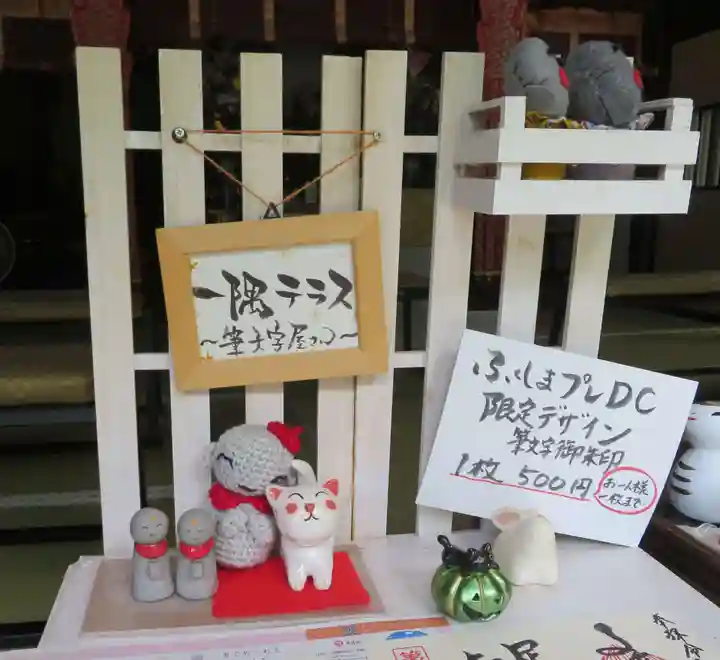 一隅テラス
〜筆文字屋カコ〜
ふくしまプレDC
限定デザイン
筆文字御朱印
1枚 500円
お一人様
一枚まで
奉拝